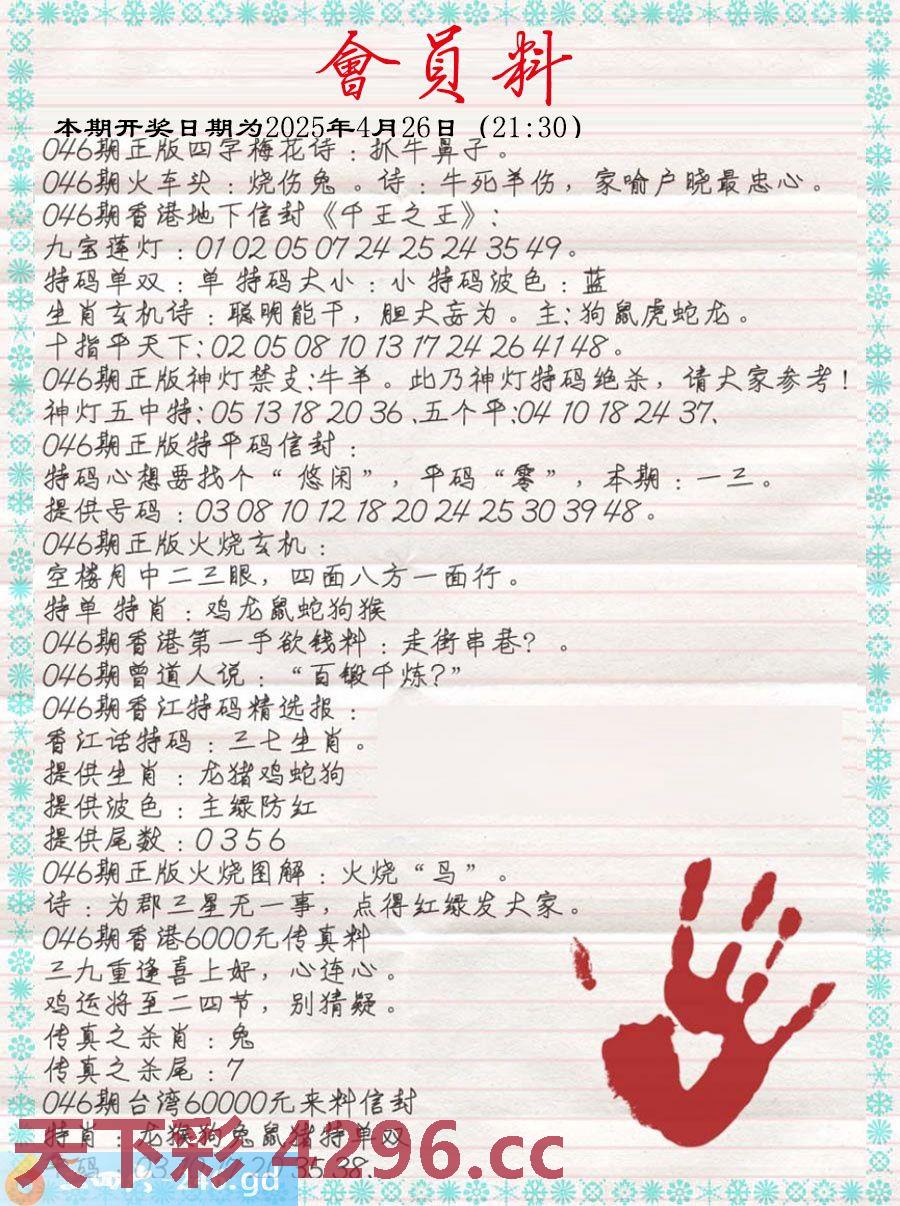 會員料
本期开奖日期为2025年4月26日（21:30）
046期正版四字梅花诗：抓牛鼻子。
046期火车头：烧伤兔 。诗：牛死羊伤，家喻户晓最忠心。
046期香港地下信封《千王之王》：
九宝莲灯：01 02 05 07 24 25 24 35 49。
特码单双：单 特码大小：小 特码波色：蓝
生肖玄机诗：聪明能干，胆大妄为。主：狗鼠虎蛇龙。
十指平天下：02 05 08 10 13 17 24 26 41 48。
046期正版神灯禁支:牛羊。此乃神灯特码绝杀，请大家参考！
神灯五中特：05 13 18 20 36 .五个平:04 10 18 24 37.
046期正版特平码信封：
特码心想要找个“ 悠闲”，平码“零”，本期：一三。
提供号码：03 08 10 12 18 20 24 25 30 39 48。
046期正版火烧玄机：
空楼月中二三眼，四面八方一面行。
特单 特肖：鸡龙鼠蛇狗猴
046期香港第一手欲钱料：走街串巷？。
046期曾道人说：“百锻千炼?”
046期香江特码精选报：
香江话特码：三七生肖。
提供生肖：龙猪鸡蛇狗
提供波色：主绿防红
提供尾数：0 3 5 6
046期正版火烧图解：火烧“鸟”。
诗：为郡三星无一事，点得红绿发大家。
046期香港6000元传真料
三九重逢喜上好，心连心。
鸡运将至二四节，别猜疑。
传真之杀肖：兔
传真之杀尾：7
046期台湾60000元来料信封
特肖：龙猴狗兔鼠猪特单双
35 38.
天下彩 4296.cc